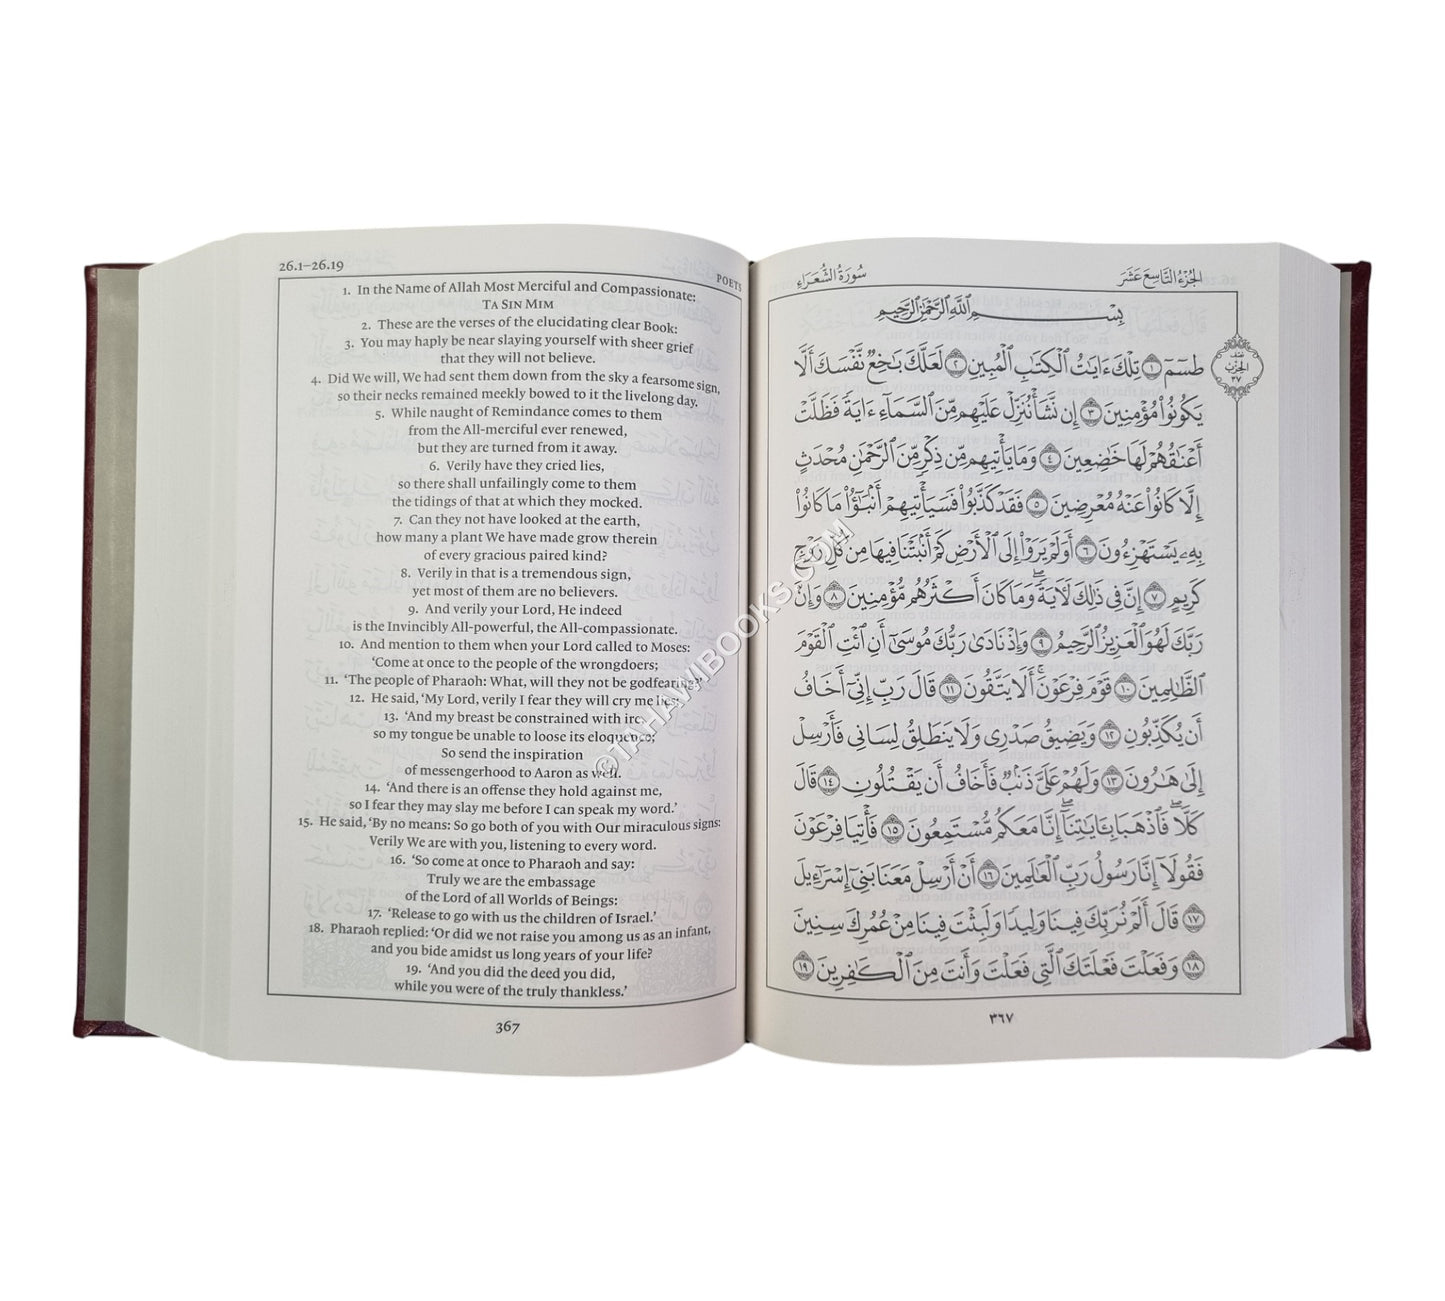 26.1–26.19
POETS
1. In the Name of Allah Most Merciful and Compassionate:
TA SIN MIM
2. These are the verses of the elucidating clear Book:
3. You may haply be near slaying yourself with sheer grief
that they will not believe.
4. Did We will, We had sent them down from the sky a fearsome sign,
so their necks remained meekly bowed to it the livelong day.
5. While naught of Remindance comes to them
from the All-merciful ever renewed,
but they are turned from it away.
6. Verily have they cried lies,
so there shall unfailingly come to them
the tidings of that at which they mocked.
7. Can they not have looked at the earth,
how many a plant We have made grow therein
of every gracious paired kind?
8. Verily in that is a tremendous sign,
yet most of them are no believers.
9. And verily your Lord, He indeed
is the Invincibly All-powerful, the All-compassionate.
10. And mention to them when your Lord called to Moses:
‘Come at once to the people of the wrongdoers;
11. ‘The people of Pharaoh: What, will they not be godfearing?’
12. He said, ‘My Lord, verily I fear they will cry me lies;
13. ‘And my breast be constrained with ire,
so my tongue be unable to loose its eloquence;
So send the inspiration
of messengerhood to Aaron as well.
14. ‘And there is an offense they hold against me,
so I fear they may slay me before I can speak my word.’
15. He said, ‘By no means: So go both of you with Our miraculous signs:
Verily We are with you, listening to every word.
16. ‘So come at once to Pharaoh and say:
Truly we are the embassage
of the Lord of all Worlds of Beings:
17. ‘Release to go with us the children of Israel.’
18. Pharaoh replied: ‘Or did we not raise you among us as an infant,
and you bide amidst us long years of your life?
19. ‘And you did the deed you did,
while you were of the truly thankless.’
367
الجُزْءُ التَّاسِعَ عَشَرَ
سُورَةُ الشُّعَرَاءِ
بِسْمِ ٱللَّهِ ٱلرَّحْمَٰنِ ٱلرَّحِيمِ
نصف
الحزب
٣٧
طسٓمٓ ١ تِلْكَ ءَايَٰتُ ٱلْكِتَٰبِ ٱلْمُبِينِ ٢ لَعَلَّكَ بَٰخِعٌ نَّفْسَكَ أَلَّا
يَكُونُوا۟ مُؤْمِنِينَ ٣ إِن نَّشَأْ نُنَزِّلْ عَلَيْهِم مِّنَ ٱلسَّمَآءِ ءَايَةً فَظَلَّتْ
أَعْنَٰقُهُمْ لَهَا خَٰضِعِينَ ٤ وَمَا يَأْتِيهِم مِّن ذِكْرٍ مِّنَ ٱلرَّحْمَٰنِ مُحْدَثٍ
إِلَّا كَانُوا۟ عَنْهُ مُعْرِضِينَ ٥ فَقَدْ كَذَّبُوا۟ فَسَيَأْتِيهِمْ أَنۢبَٰٓؤُا۟ مَا كَانُوا۟
بِهِۦ يَسْتَهْزِءُونَ ٦ أَوَلَمْ يَرَوْا۟ إِلَى ٱلْأَرْضِ كَمْ أَنۢبَتْنَا فِيهَا مِن كُلِّ زَوْجٍ
كَرِيمٍ ٧ إِنَّ فِى ذَٰلِكَ لَءَايَةً ۖ وَمَا كَانَ أَكْثَرُهُم مُّؤْمِنِينَ ٨ وَإِنَّ
رَبَّكَ لَهُوَ ٱلْعَزِيزُ ٱلرَّحِيمُ ٩ وَإِذْ نَادَىٰ رَبُّكَ مُوسَىٰٓ أَنِ ٱئْتِ ٱلْقَوْمَ
ٱلظَّٰلِمِينَ ١٠ قَوْمَ فِرْعَوْنَ ۚ أَلَا يَتَّقُونَ ١١ قَالَ رَبِّ إِنِّىٓ أَخَافُ
أَن يُكَذِّبُونِ ١٢ وَيَضِيقُ صَدْرِى وَلَا يَنطَلِقُ لِسَانِى فَأَرْسِلْ
إِلَىٰ هَٰرُونَ ١٣ وَلَهُمْ عَلَىَّ ذَنۢبٌ فَأَخَافُ أَن يَقْتُلُونِ ١٤ قَالَ
كَلَّا ۖ فَٱذْهَبَا بِـَٔايَٰتِنَآ ۖ إِنَّا مَعَكُم مُّسْتَمِعُونَ ١٥ فَأْتِيَا فِرْعَوْنَ
فَقُولَآ إِنَّا رَسُولُ رَبِّ ٱلْعَٰلَمِينَ ١٦ أَنْ أَرْسِلْ مَعَنَا بَنِىٓ إِسْرَٰٓءِيلَ
١٧ قَالَ أَلَمْ نُرَبِّكَ فِينَا وَلِيدًا وَلَبِثْتَ فِينَا مِنْ عُمُرِكَ سِنِينَ
١٨ وَفَعَلْتَ فَعْلَتَكَ ٱلَّتِى فَعَلْتَ وَأَنتَ مِنَ ٱلْكَٰفِرِينَ ١٩
٣٦٧
©TAHAWIBOOKS.COM